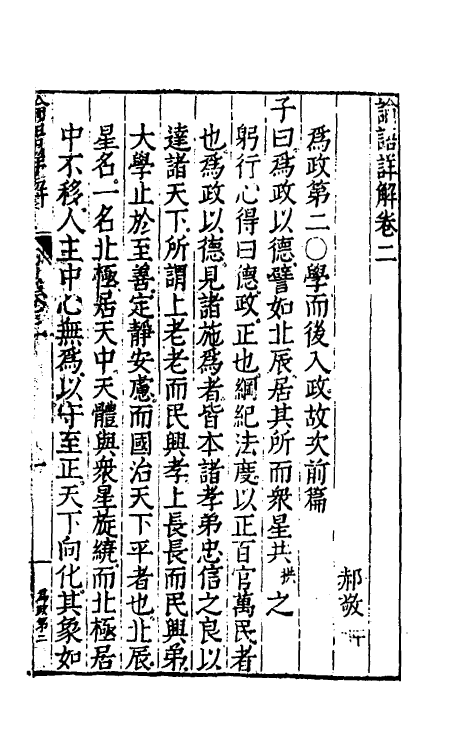 論語詳解卷二
郝敬
爲政第二○學而後入政故次前篇
子曰爲政以德譬如北辰居其所而衆星共拱之
躬行心得曰德政正也綱紀法度以正百官萬民者
也爲政以德見諸施爲者皆本諸孝弟忠信之良以
達諸天下所謂上老老而民興孝上長長而民興弟
大學止於至善定靜安慮而國治天下平者也北辰
星名一名北極居天中天體與衆星旋繞而北極居
中不移人主中心無爲以守至正天下向化其象如
爲政第二